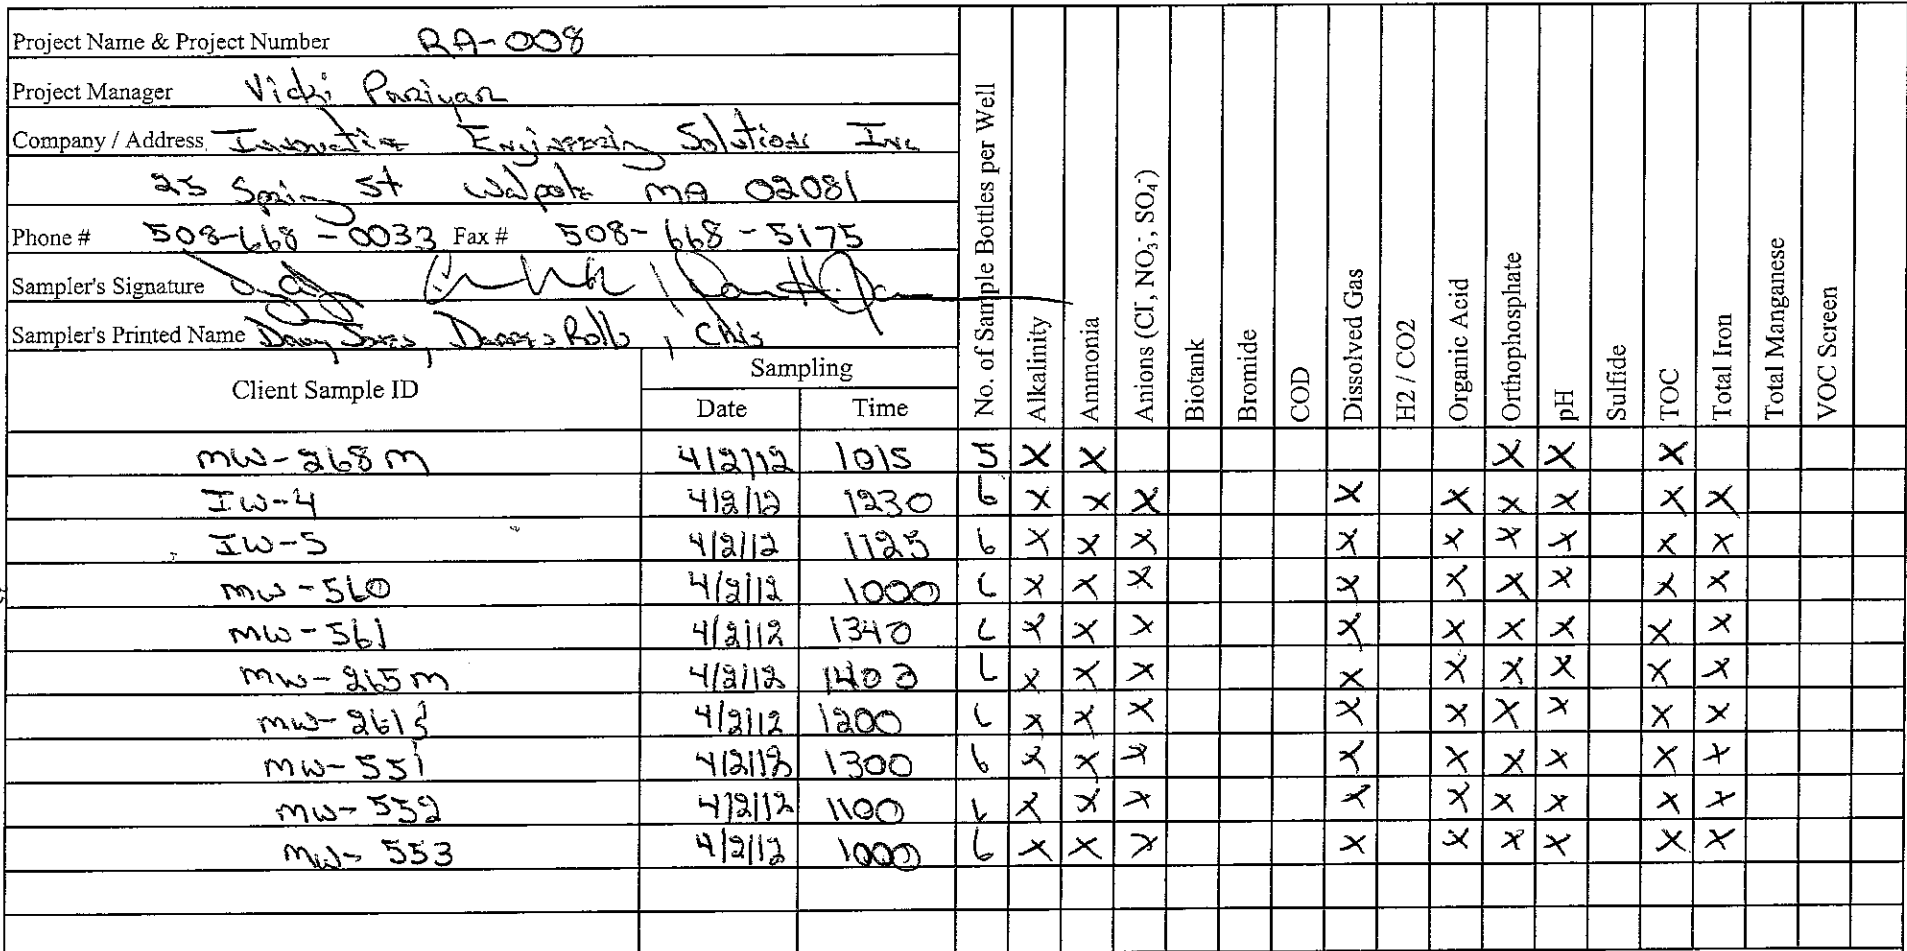 Project Name & Project Number RA-008
Project Manager Vicki Pariyar
Company / Address Innovative Engineering Solutions Inc
25 Spring St Walpole MA 02081
Phone # 508-668-0033 Fax # 508-668-5175
Sampler's Signature
Sampler's Printed Name
Client Sample ID
Sampling
Date Time
No. of Sample Bottles per Well
Alkalinity
Ammonia
Anions (Cl-, NO3-, SO4-)
Biotank
Bromide
COD
Dissolved Gas
H2 / CO2
Organic Acid
Orthophosphate
pH
Sulfide
TOC
Total Iron
Total Manganese
VOC Screen
MW-268M 4/2/12 1015 5 X X X X X
IW-4 4/2/12 1230 6 X X X X X X X X X
IW-5 4/2/12 1125 6 X X X X X X X X X
MW-560 4/2/12 1000 6 X X X X X X X X X
MW-561 4/2/12 1340 6 X X X X X X X X X
MW-265M 4/2/12 1400 6 X X X X X X X X X
4/2/12 1200 6 X X X X X X X X X
MW-551 4/2/12 1300 6 X X X X X X X X X
MW-552 4/2/12 1100 6 X X X X X X X X X
MW-553 4/2/12 1000 6 X X X X X X X X X